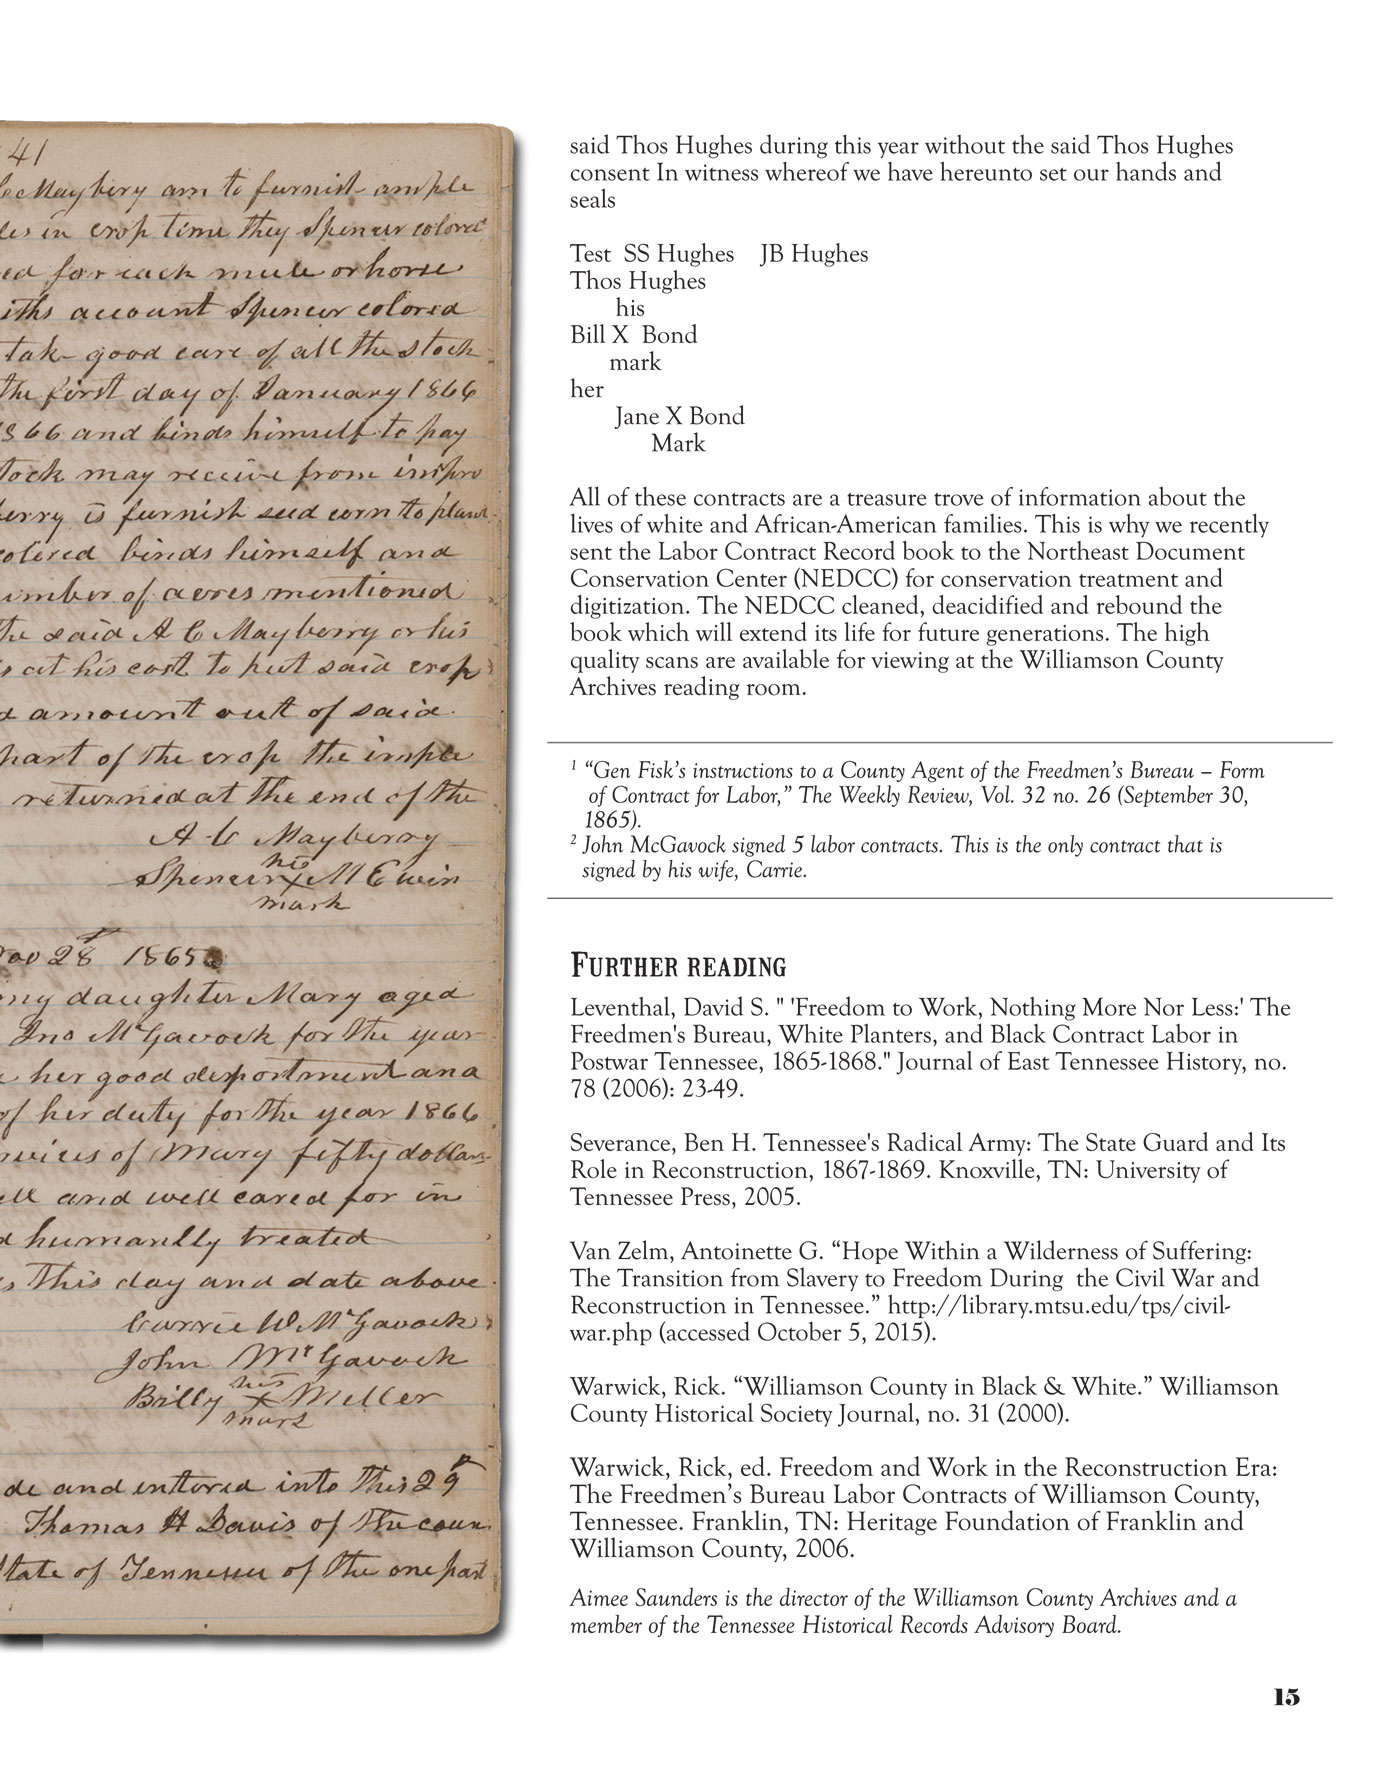 41
Mayberry am to furnish ample
in crop time they Spencer colored
for each mule or horse
account Spencer colored
take good care of all the stock
the first day of January 1866
1866 and binds himself to pay
stock may receive from impro
is furnish seed corn to plant
colored binds himself and
number of acres mentioned
the said A C Mayberry or his
at his cost to put said crop
amount out of said
part of the crop the imple
returned at the end of the
A C Mayberry
his
Spencer X McEwin
mark
Nov 28th 1865
my daughter Mary aged
Jno McGavock for the year
her good deportment and
of her duty for the year 1866
services of Mary fifty dollars
and well cared for in
humanlly treated
this day and date above
Carrie W McGavock
John McGavock
his
Billy X Miller
mark
and entered into this 29th
Thomas H Davis of the coun
State of Tennessee of the one part
said Thos Hughes during this year without the said Thos Hughes
consent In witness whereof we have hereunto set our hands and
seals
Test SS Hughes JB Hughes
Thos Hughes
his
Bill X Bond
mark
her
Jane X Bond
Mark
All of these contracts are a treasure trove of information about the
lives of white and African-American families. This is why we recently
sent the Labor Contract Record book to the Northeast Document
Conservation Center (NEDCC) for conservation treatment and
digitization. The NEDCC cleaned, deacidified and rebound the
book which will extend its life for future generations. The high
quality scans are available for viewing at the Williamson County
Archives reading room.
1 “Gen Fisk’s instructions to a County Agent of the Freedmen’s Bureau – Form
of Contract for Labor,” The Weekly Review, Vol. 32 no. 26 (September 30,
1865).
2 John McGavock signed 5 labor contracts. This is the only contract that is
signed by his wife, Carrie.
FURTHER READING
Leventhal, David S. " 'Freedom to Work, Nothing More Nor Less:' The
Freedmen's Bureau, White Planters, and Black Contract Labor in
Postwar Tennessee, 1865-1868." Journal of East Tennessee History, no.
78 (2006): 23-49.
Severance, Ben H. Tennessee's Radical Army: The State Guard and Its
Role in Reconstruction, 1867-1869. Knoxville, TN: University of
Tennessee Press, 2005.
Van Zelm, Antoinette G. “Hope Within a Wilderness of Suffering:
The Transition from Slavery to Freedom During the Civil War and
Reconstruction in Tennessee.” http://library.mtsu.edu/tps/civil-
war.php (accessed October 5, 2015).
Warwick, Rick. “Williamson County in Black & White.” Williamson
County Historical Society Journal, no. 31 (2000).
Warwick, Rick, ed. Freedom and Work in the Reconstruction Era:
The Freedmen’s Bureau Labor Contracts of Williamson County,
Tennessee. Franklin, TN: Heritage Foundation of Franklin and
Williamson County, 2006.
Aimee Saunders is the director of the Williamson County Archives and a
member of the Tennessee Historical Records Advisory Board.
15